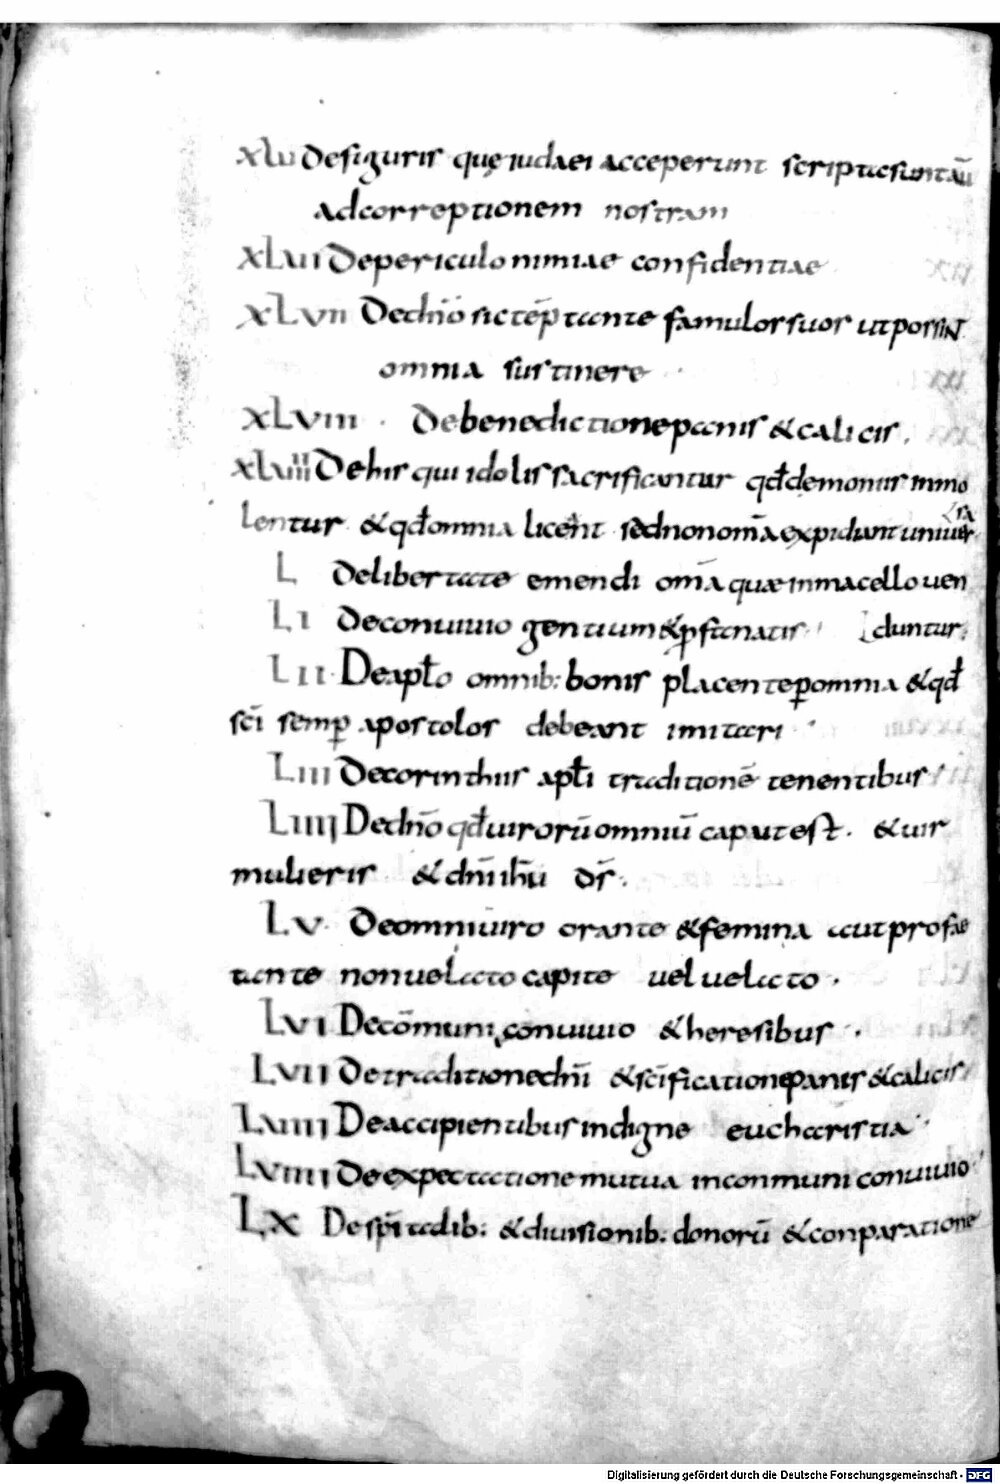 XLU Defiguris quę iudaei acceperunt scriptae sunt aū
adcorreptionem nostram
XLUI Depericulo nimiae confidentiae
XLVII Dedn̄o sic tēptante famulos suos ut possint
omnia sustinere
XLVIII . De benedictione panis & calicis .
XLUIIII Dehis qui idolis sacrificantur qđ demoniis immo
lentur & qđ omnia licent sed non om̄a expidiant uniuer
sa
L De libertate emendi om̄a quae in macello uen
LI De conuiuio gentium & p̄fanatis duntur.
LII De apl̄o omnib: bonis placente ꝑ omnia & qđ
sc̄i semꝑ apostolos debeant imitari
LIII De corinthiis apl̄i traditionē tenentibus
LIIII De dn̄o qđ uirorū omniū caput est . & uir
mulieris & dn̄i ih̄u ds̄ .
LV . De omni uiro orante & femina aut profae
tante non uelato capite uel uelato .
LVI De cōmuni conuiuio & heresibus .
LVII De traditione dn̄i & sc̄ificatione panis & calicis
LVIIII De accipientibus indigne eucharistia
LVIIII De expectatione mutua in conmuni conuiuio
LX De sp̄italib: & diuisionib: donorū & conparatione
Digitalisierung gefördert durch die Deutsche Forschungsgemeinschaft - DFG